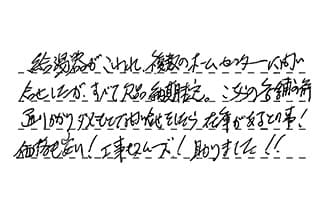 給湯器がこわれ、複数のホームセンターに問い
合せしたが、すべて欠品納期未定。こちらの店舗の前
通りかかりダメもとで問い合せをしたら在庫があるとの事!
価格も安い!工事もスムーズ!助りました!!